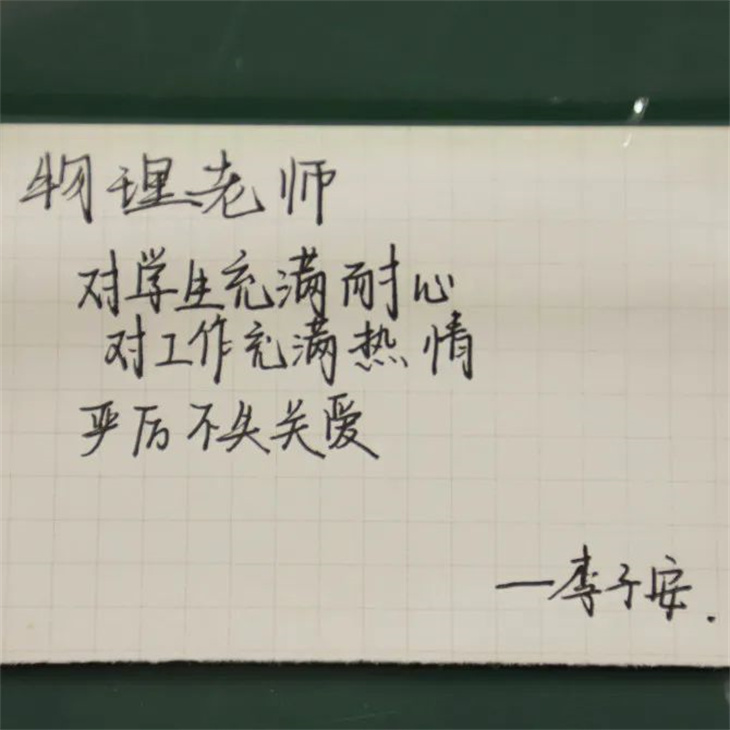 物理老师
对学生充满耐心
对工作充满热情
严厉不失关爱
—李子安.